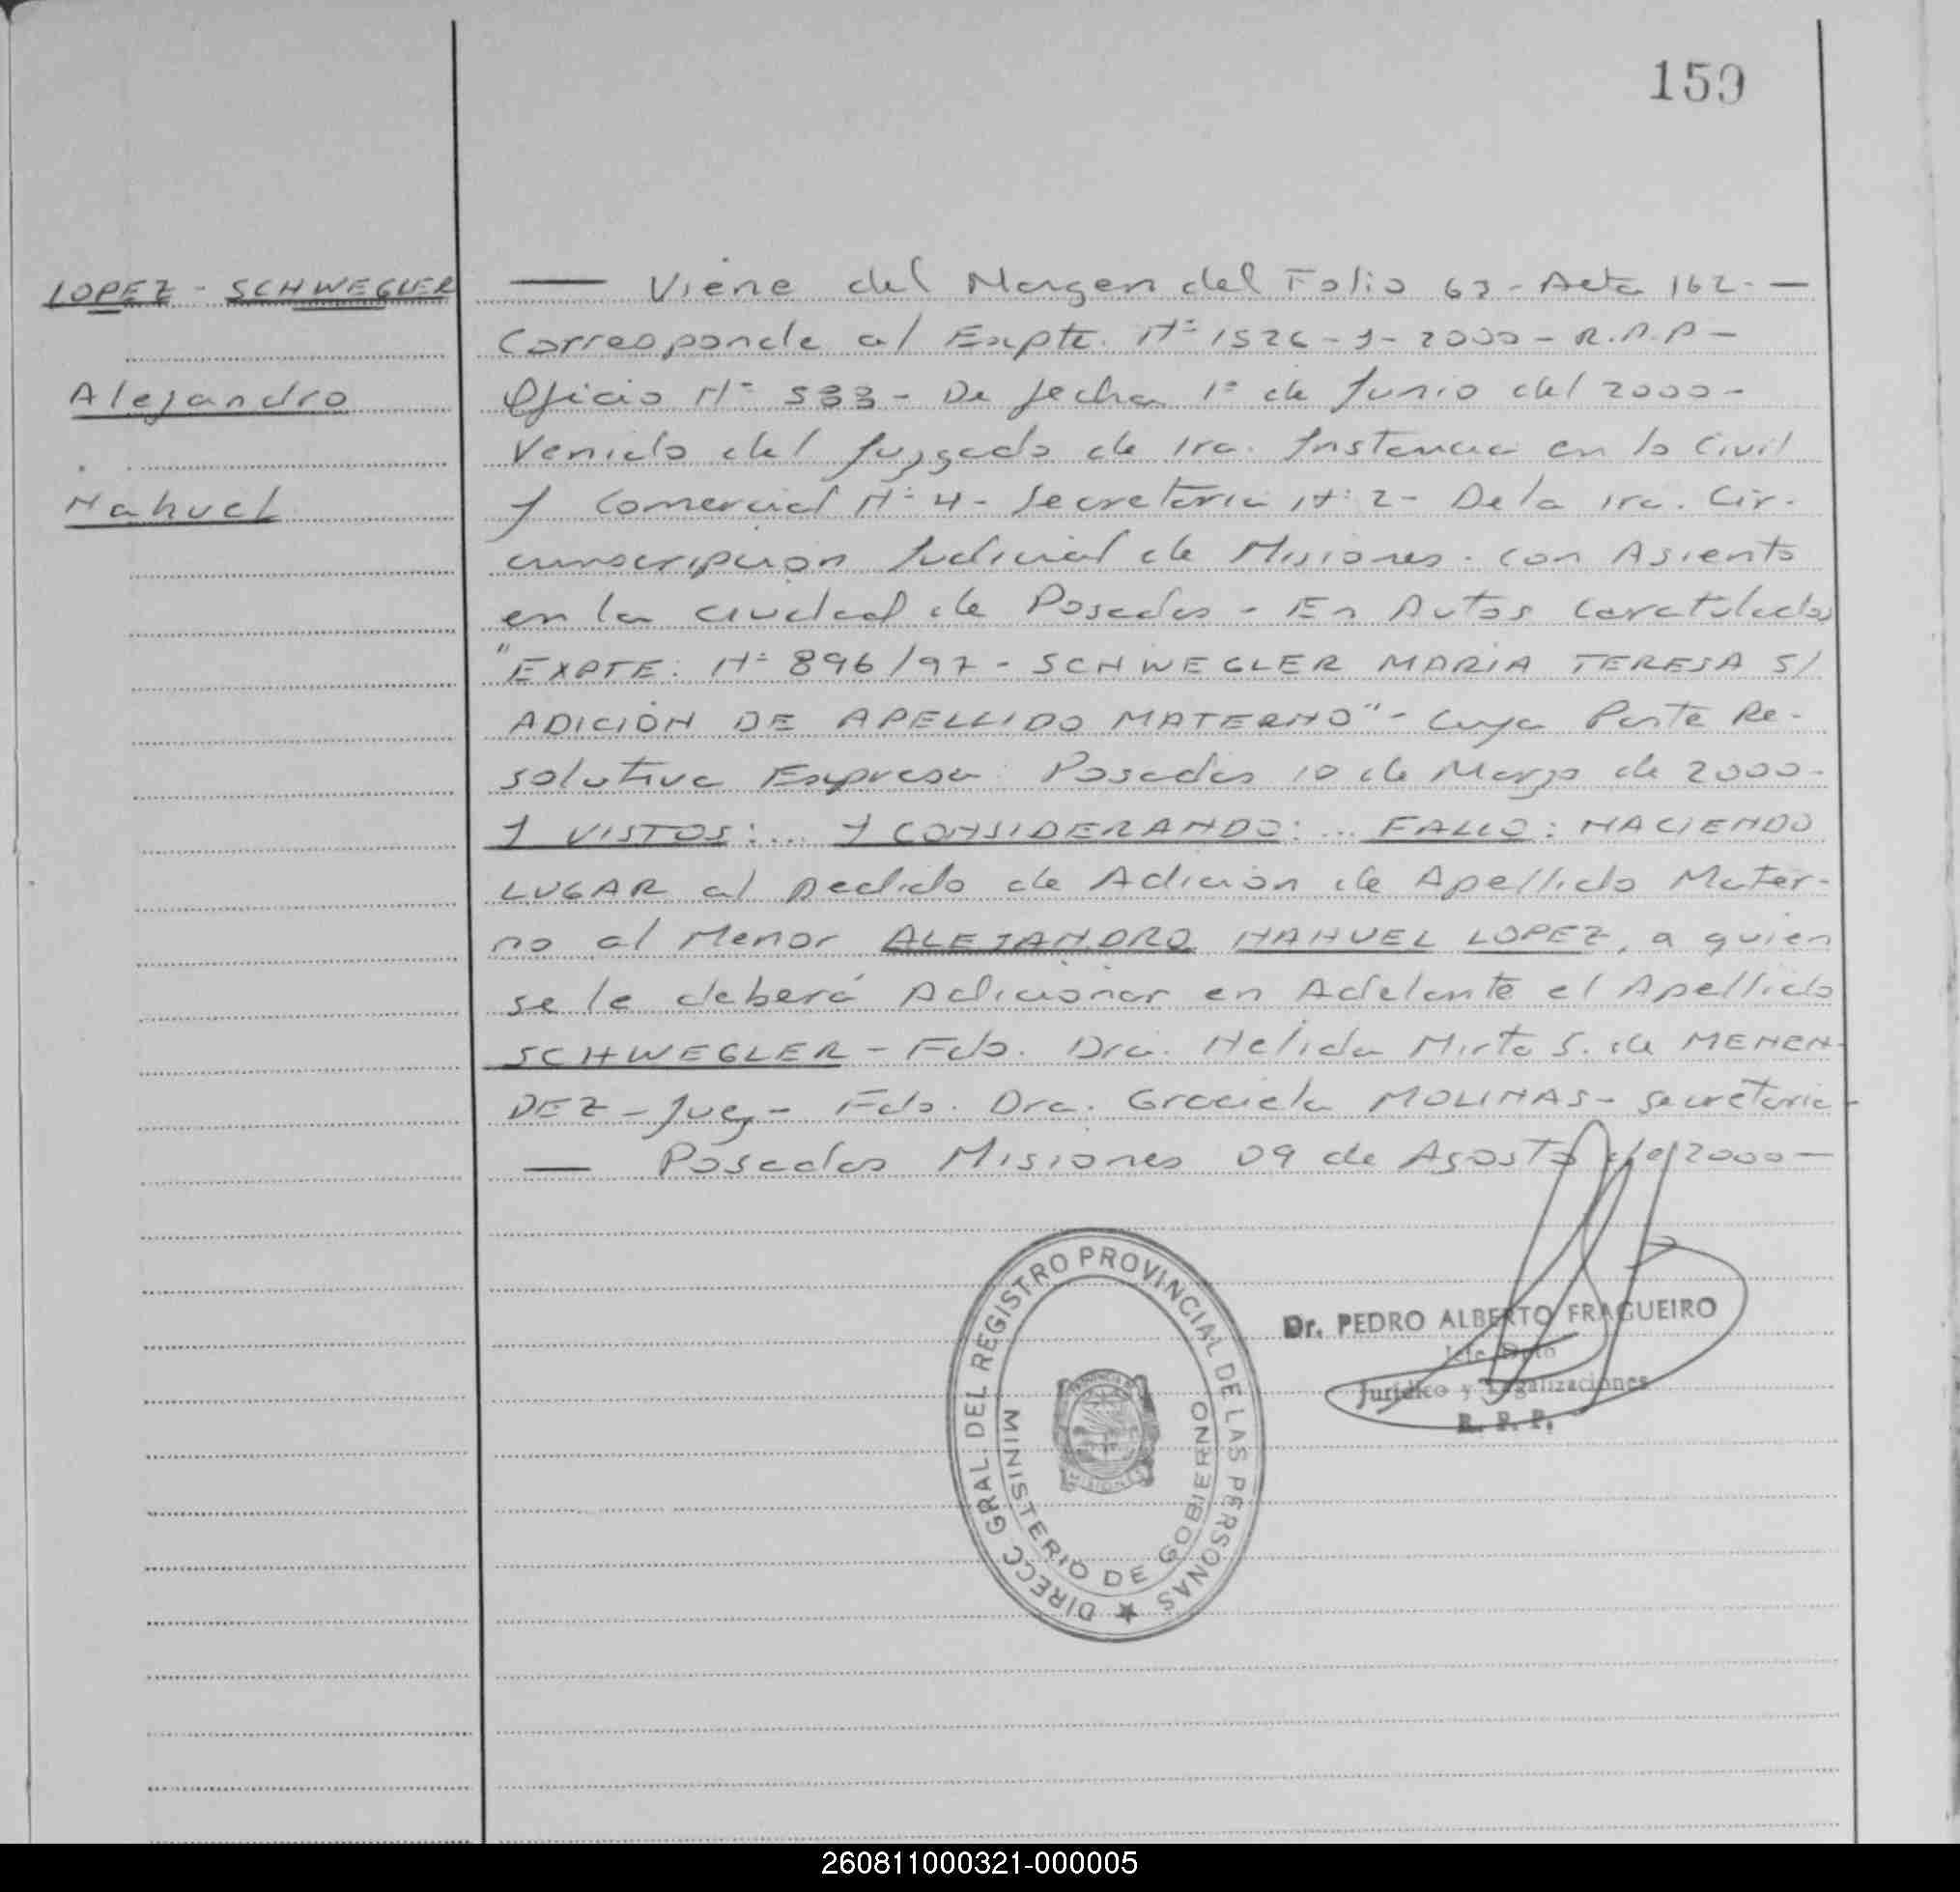 159
LOPEZ - SCHWEGLER
Alejandro
Nahuel
— Viene del Margen del Folio 63 - Acta 162. —
Corresponde al Expte. Nº 1526 - J - 2000 - R.P.P -
Oficio Nº 533 - De fecha 1º de Junio del 2000 -
Venido del Juzgado de 1ra. Instancia en lo Civil
y Comercial Nº 4 - Secretaria Nº 2 - De la 1ra. Cir-
cunscripcion Judicial de Misiones - con Asiento
en la ciudad de Posadas - En Autos Caratulados
"EXPTE: Nº 896/97 - SCHWEGLER MARIA TERESA S/
ADICIÓN DE APELLIDO MATERNO" - Cuya Parte Re-
solutiva Expresa: Posadas 10 de Marzo de 2000-
Y VISTOS: ... Y CONSIDERANDO: ... FALLO: HACIENDO
LUGAR al pedido de Adición de Apellido Mater-
no al Menor ALEJANDRO NAHUEL LOPEZ, a quien
se le deberá Adicionar en Adelante el Apellido
SCHWEGLER - Fdo. Dra. Helida Mirta S. de MENEN-
DEZ - Juez - Fdo. Dra. Graciela MOLINAS - Secretaria -
— Posadas Misiones 09 de Agosto del 2000 —
DIRECC GRAL. DEL REGISTRO PROVINCIAL DE LAS PERSONAS
MINISTERIO DE GOBIERNO
MISIONES
Dr. PEDRO ALBERTO FRAGUEIRO
Jefe Dpto
Jurídico y Legalizaciones
R. P. P.
260811000321-000005